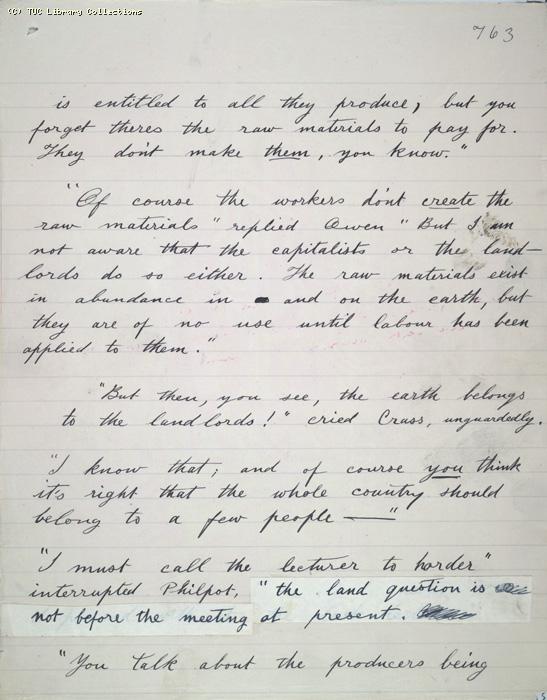 (C) TUC Library Collections
763
is entitled to all they produce, but you
forget theres the raw materials to pay for.
They don't make them, you know."
"Of course the workers dont create the
raw materials" replied Owen "But I am
not aware that the capitalists or the land-
lords do so either. The raw materials exist
in abundance in and on the earth, but
they are of no use until labour has been
applied to them."
"But then, you see, the earth belongs
to the landlords!" cried Crass, unguardedly.
"I know that; and of course you think
it's right that the whole country should
belong to a few people —"
"I must call the lecturer to horder"
interrupted Philpot, "the land question is
not before the meeting at present.
"You talk about the producers being